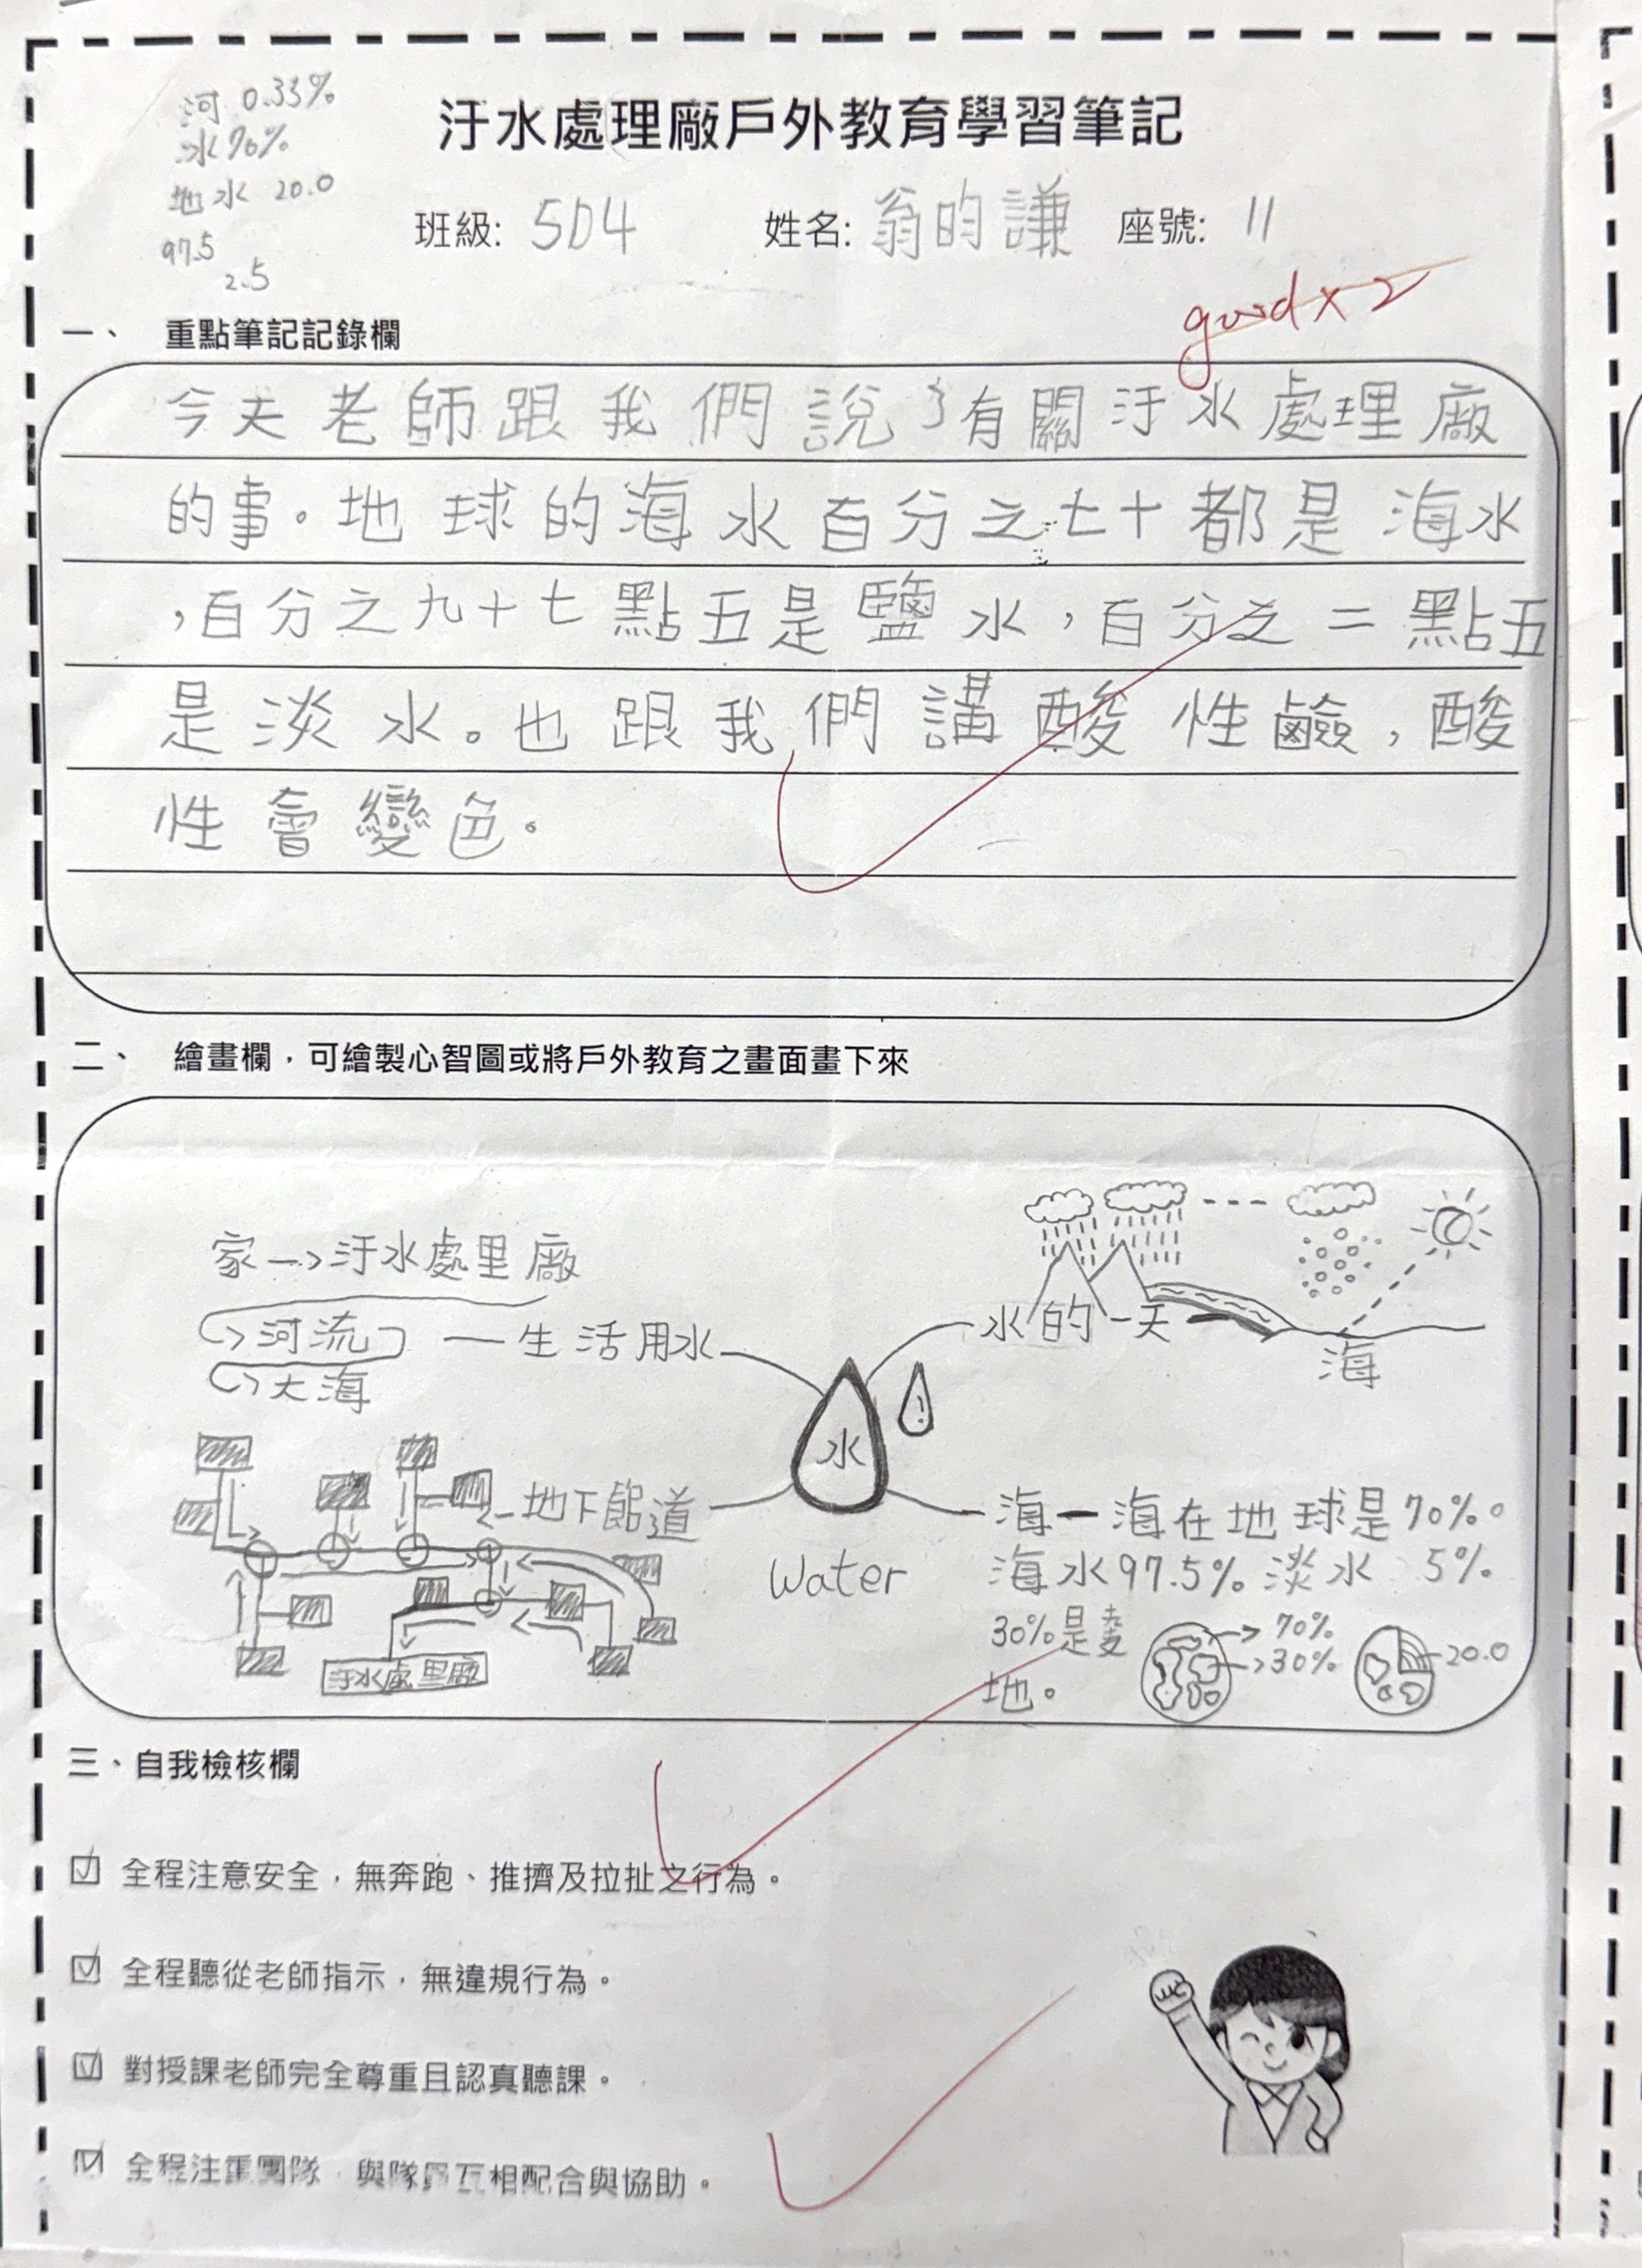 河 0.33%
冰 70%
地水 20.0
97.5
2.5
汙水處理廠戶外教育學習筆記
班級: 504 姓名: 翁昀謙 座號: 11
good x 2
一、 重點筆記記錄欄
今天老師跟我們說了有關汙水處理廠
的事。地球的海水百分之七十都是海水
,百分之九十七點五是鹽水,百分之二點五
是淡水。也跟我們講酸性鹼,酸
性會變色。
二、 繪畫欄,可繪製心智圖或將戶外教育之畫面畫下來
家→汙水處里廠
河流
大海
生活用水
水的一天
海
水
Water
地下館道
汙水處里廠
海一海在地球是70%。
海水97.5% 淡水 5%
30%是
地。
70%
30%
20.0
三、自我檢核欄
全程注意安全,無奔跑、推擠及拉扯之行為。
全程聽從老師指示,無違規行為。
對授課老師完全尊重且認真聽課。
全程注重團隊,與隊員互相配合與協助。